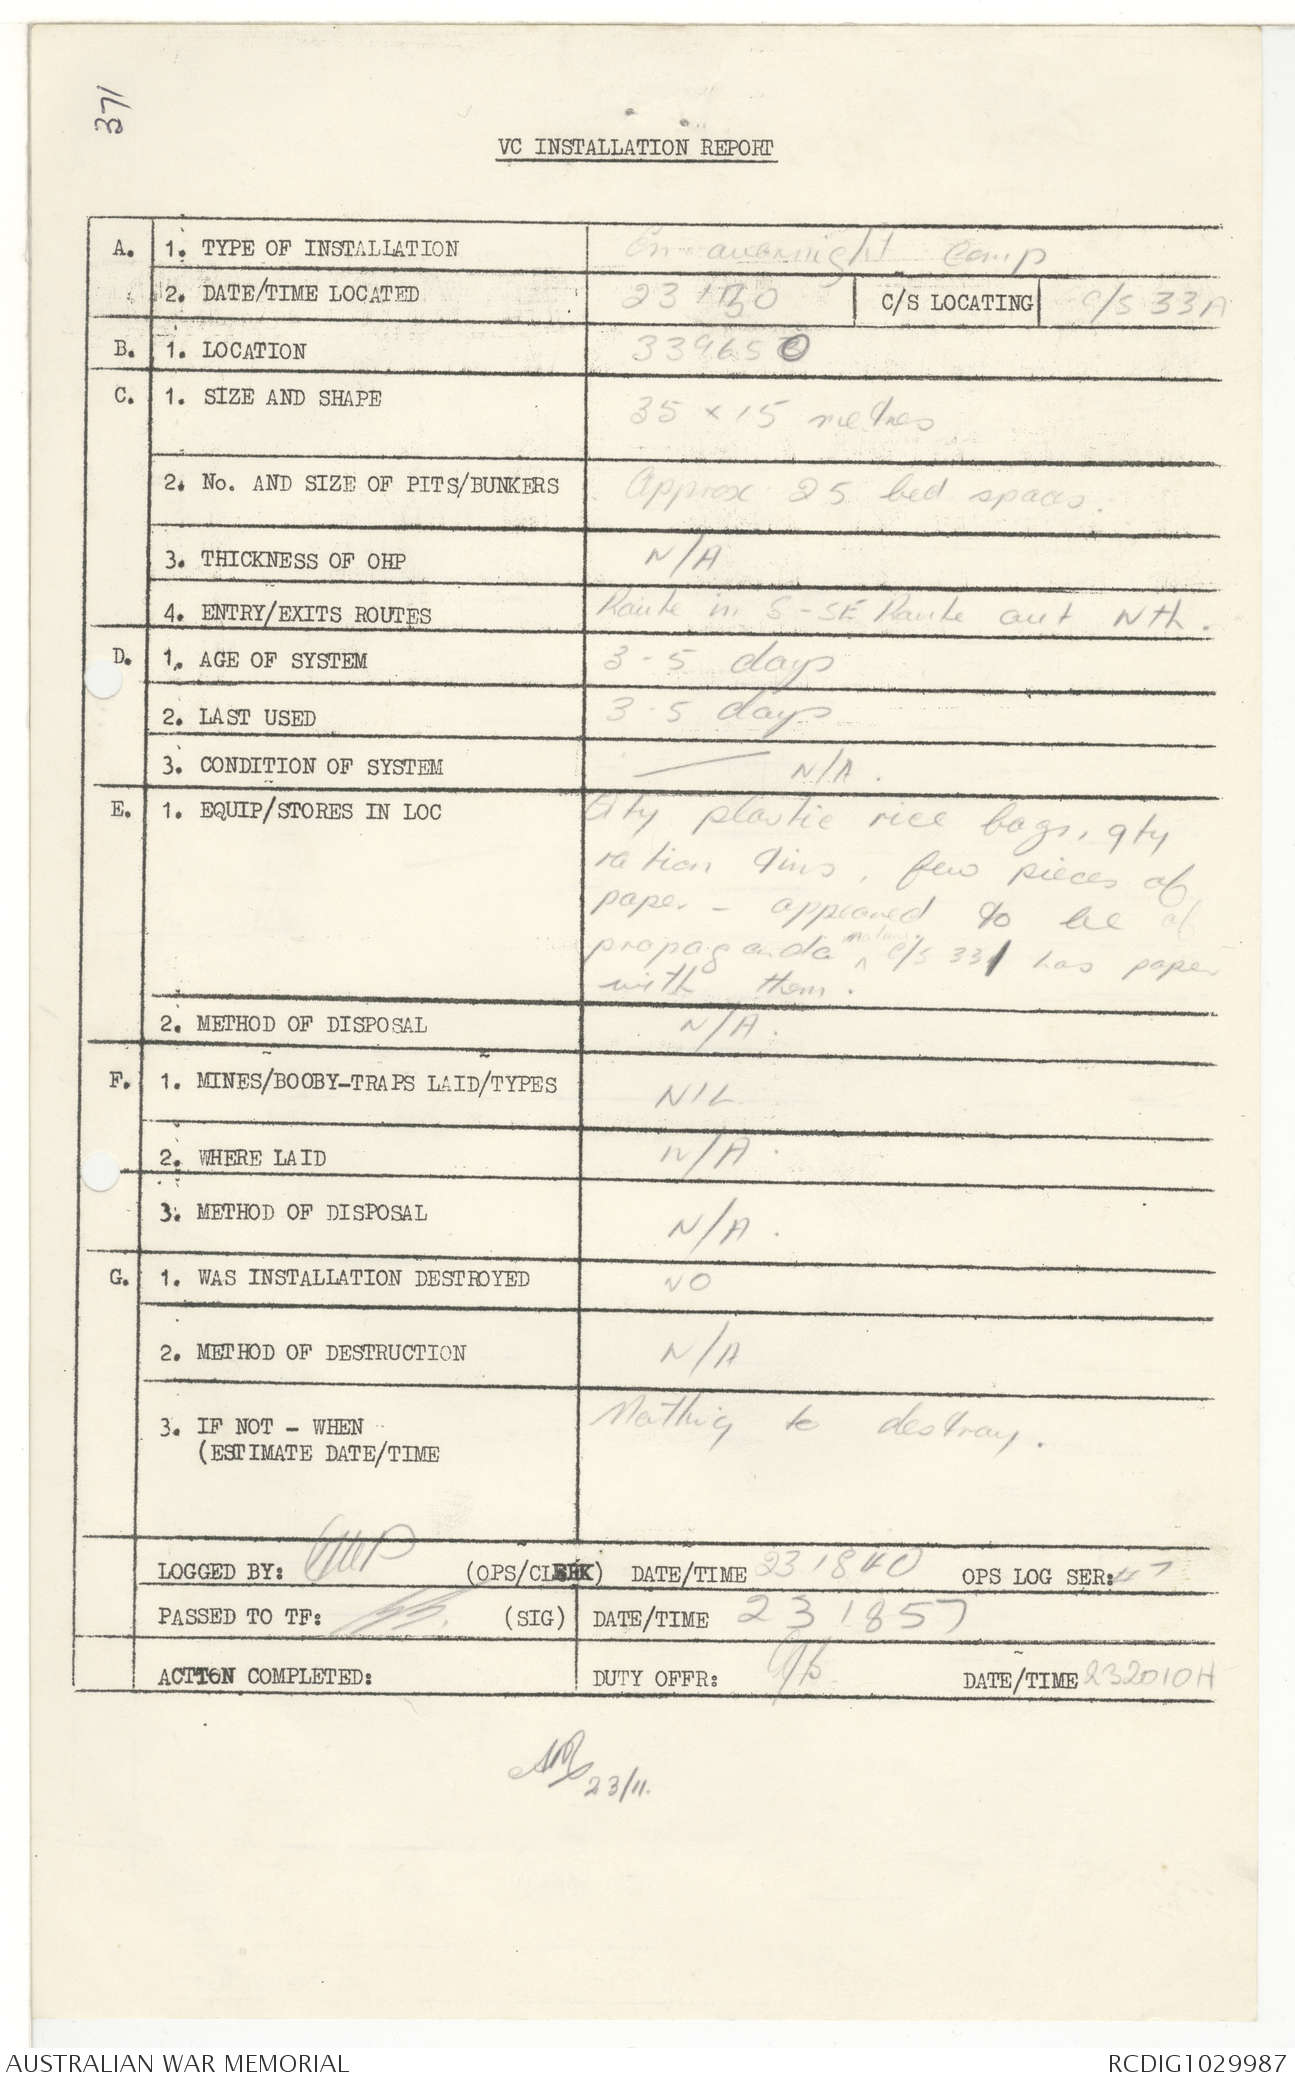 371
VC INSTALLATION REPORT
A. 1. TYPE OF INSTALLATION En overnight Camp
2. DATE/TIME LOCATED C/S LOCATING C/S 33A
B. 1. LOCATION 339650
C. 1. SIZE AND SHAPE 35 x 15 metres
2. No. AND SIZE OF PITS/BUNKERS Approx 25 bed spaces.
3. THICKNESS OF OHP N/A
4. ENTRY/EXITS ROUTES Route in S-SE Route out Nth.
D. 1. AGE OF SYSTEM 3-5 days
2. LAST USED 3-5 days
3. CONDITION OF SYSTEM N/A.
E. 1. EQUIP/STORES IN LOC Qty plastic rice bags, qty
ration tins, few pieces of
paper - appeared to be of
propaganda C/S 331 has paper
with them.
2. METHOD OF DISPOSAL N/A.
F. 1. MINES/BOOBY-TRAPS LAID/TYPES NIL
2. WHERE LAID N/A.
3. METHOD OF DISPOSAL N/A.
G. 1. WAS INSTALLATION DESTROYED NO
2. METHOD OF DESTRUCTION N/A
3. IF NOT - WHEN Nothing to destroy.
(ESTIMATE DATE/TIME
LOGGED BY: (OPS/CLERK) DATE/TIME 231840 OPS LOG SER: 47
PASSED TO TF: (SIG) DATE/TIME 231857
ACTION COMPLETED: DUTY OFFR: DATE/TIME 232010H
23/11.
AUSTRALIAN WAR MEMORIAL RCDIG1029987